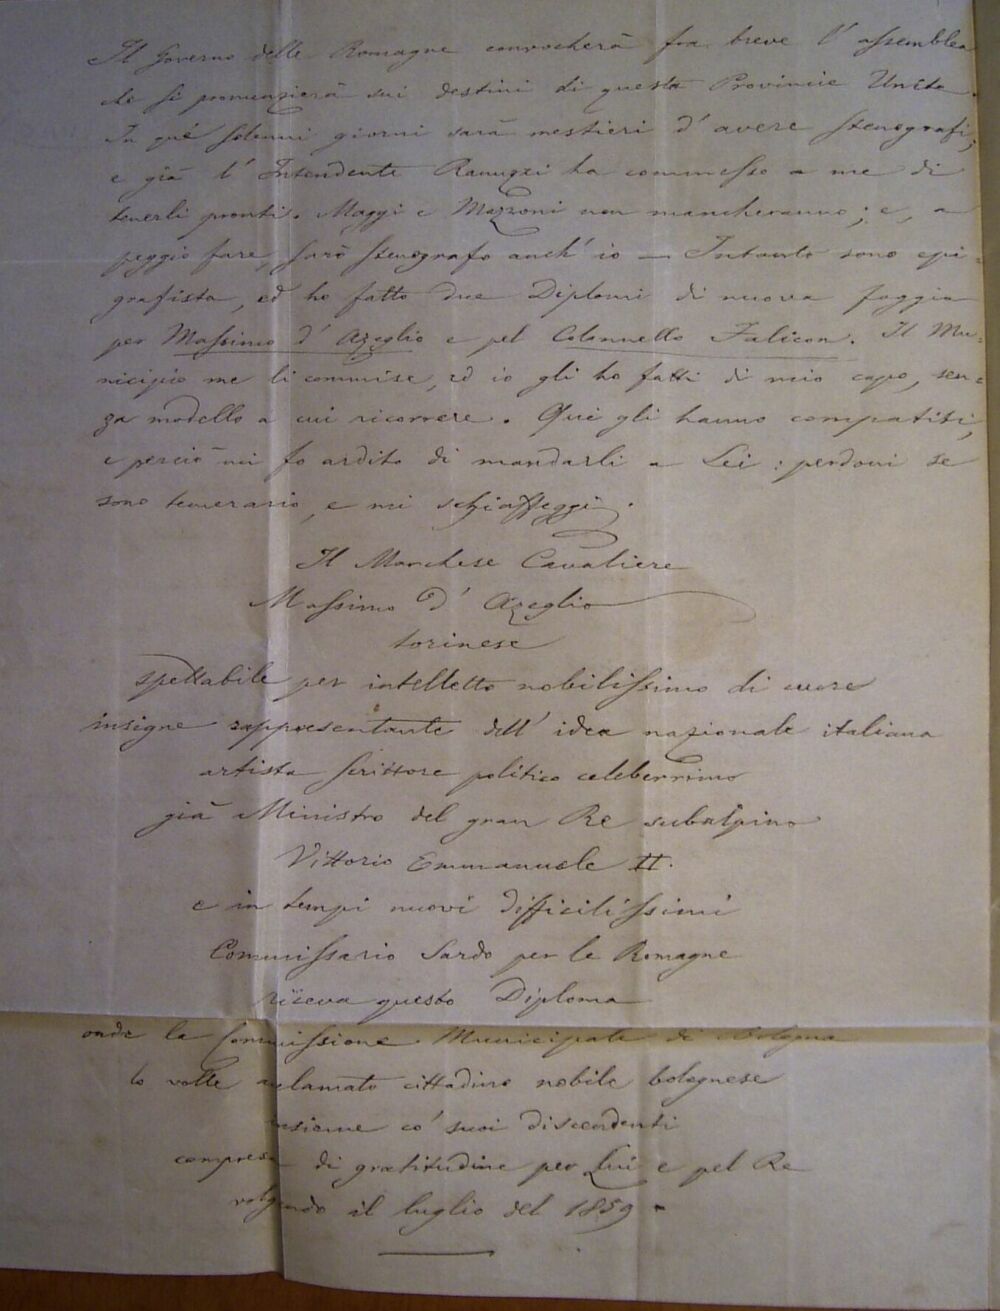 Il Governo delle Romagne convocherà fra breve l'assemblea
che si pronunzierà sui destini di questa Provincie Unite.
In que' solenni giorni sarà mestieri d'avere stenografi,
e già l'Intendente Ranuzzi ha commesso a me di
tenerli pronti. Maggi e Mazzoni non mancheranno; e, a
peggio fare, sarò stenografo anch'io — Intanto sono epi=
grafista, ed ho fatto due Diplomi di nuova foggia
per Massimo d'Azeglio e pel Colonnello Falicon. Il Mu=
nicipio me li commise, ed io gli ho fatti di mio capo, sen=
za modello a cui ricorrere. Qui gli hanno compatiti,
e perciò mi fo ardito di mandarli a Lei: perdoni se
sono temerario, e mi schiaffeggi.
Il Marchese Cavaliere
Massimo d'Azeglio
torinese
spettabile per intelletto nobilissimo di cuore
insigne rappresentante dell'idea nazionale italiana
artista scrittore politico celeberrimo
già Ministro del gran Re subalpino
Vittorio Emmanuele II.
e in tempi nuovi difficilissimi
Commissario Sardo per le Romagne
riceva questo Diploma
onde la Commissione Municipale di Bologna
lo volle acclamato cittadino nobile bolognese
insieme co' suoi discendenti
compresa di gratitudine per Lui e pel Re
volgendo il luglio del 1859.